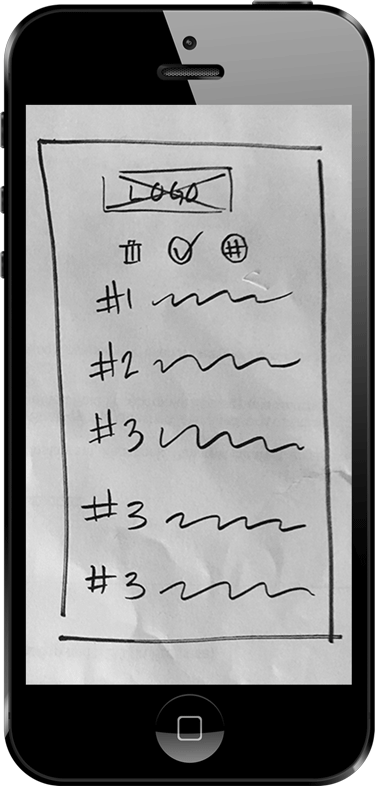 LOGO
#
#1
#2
#3
#3
#3